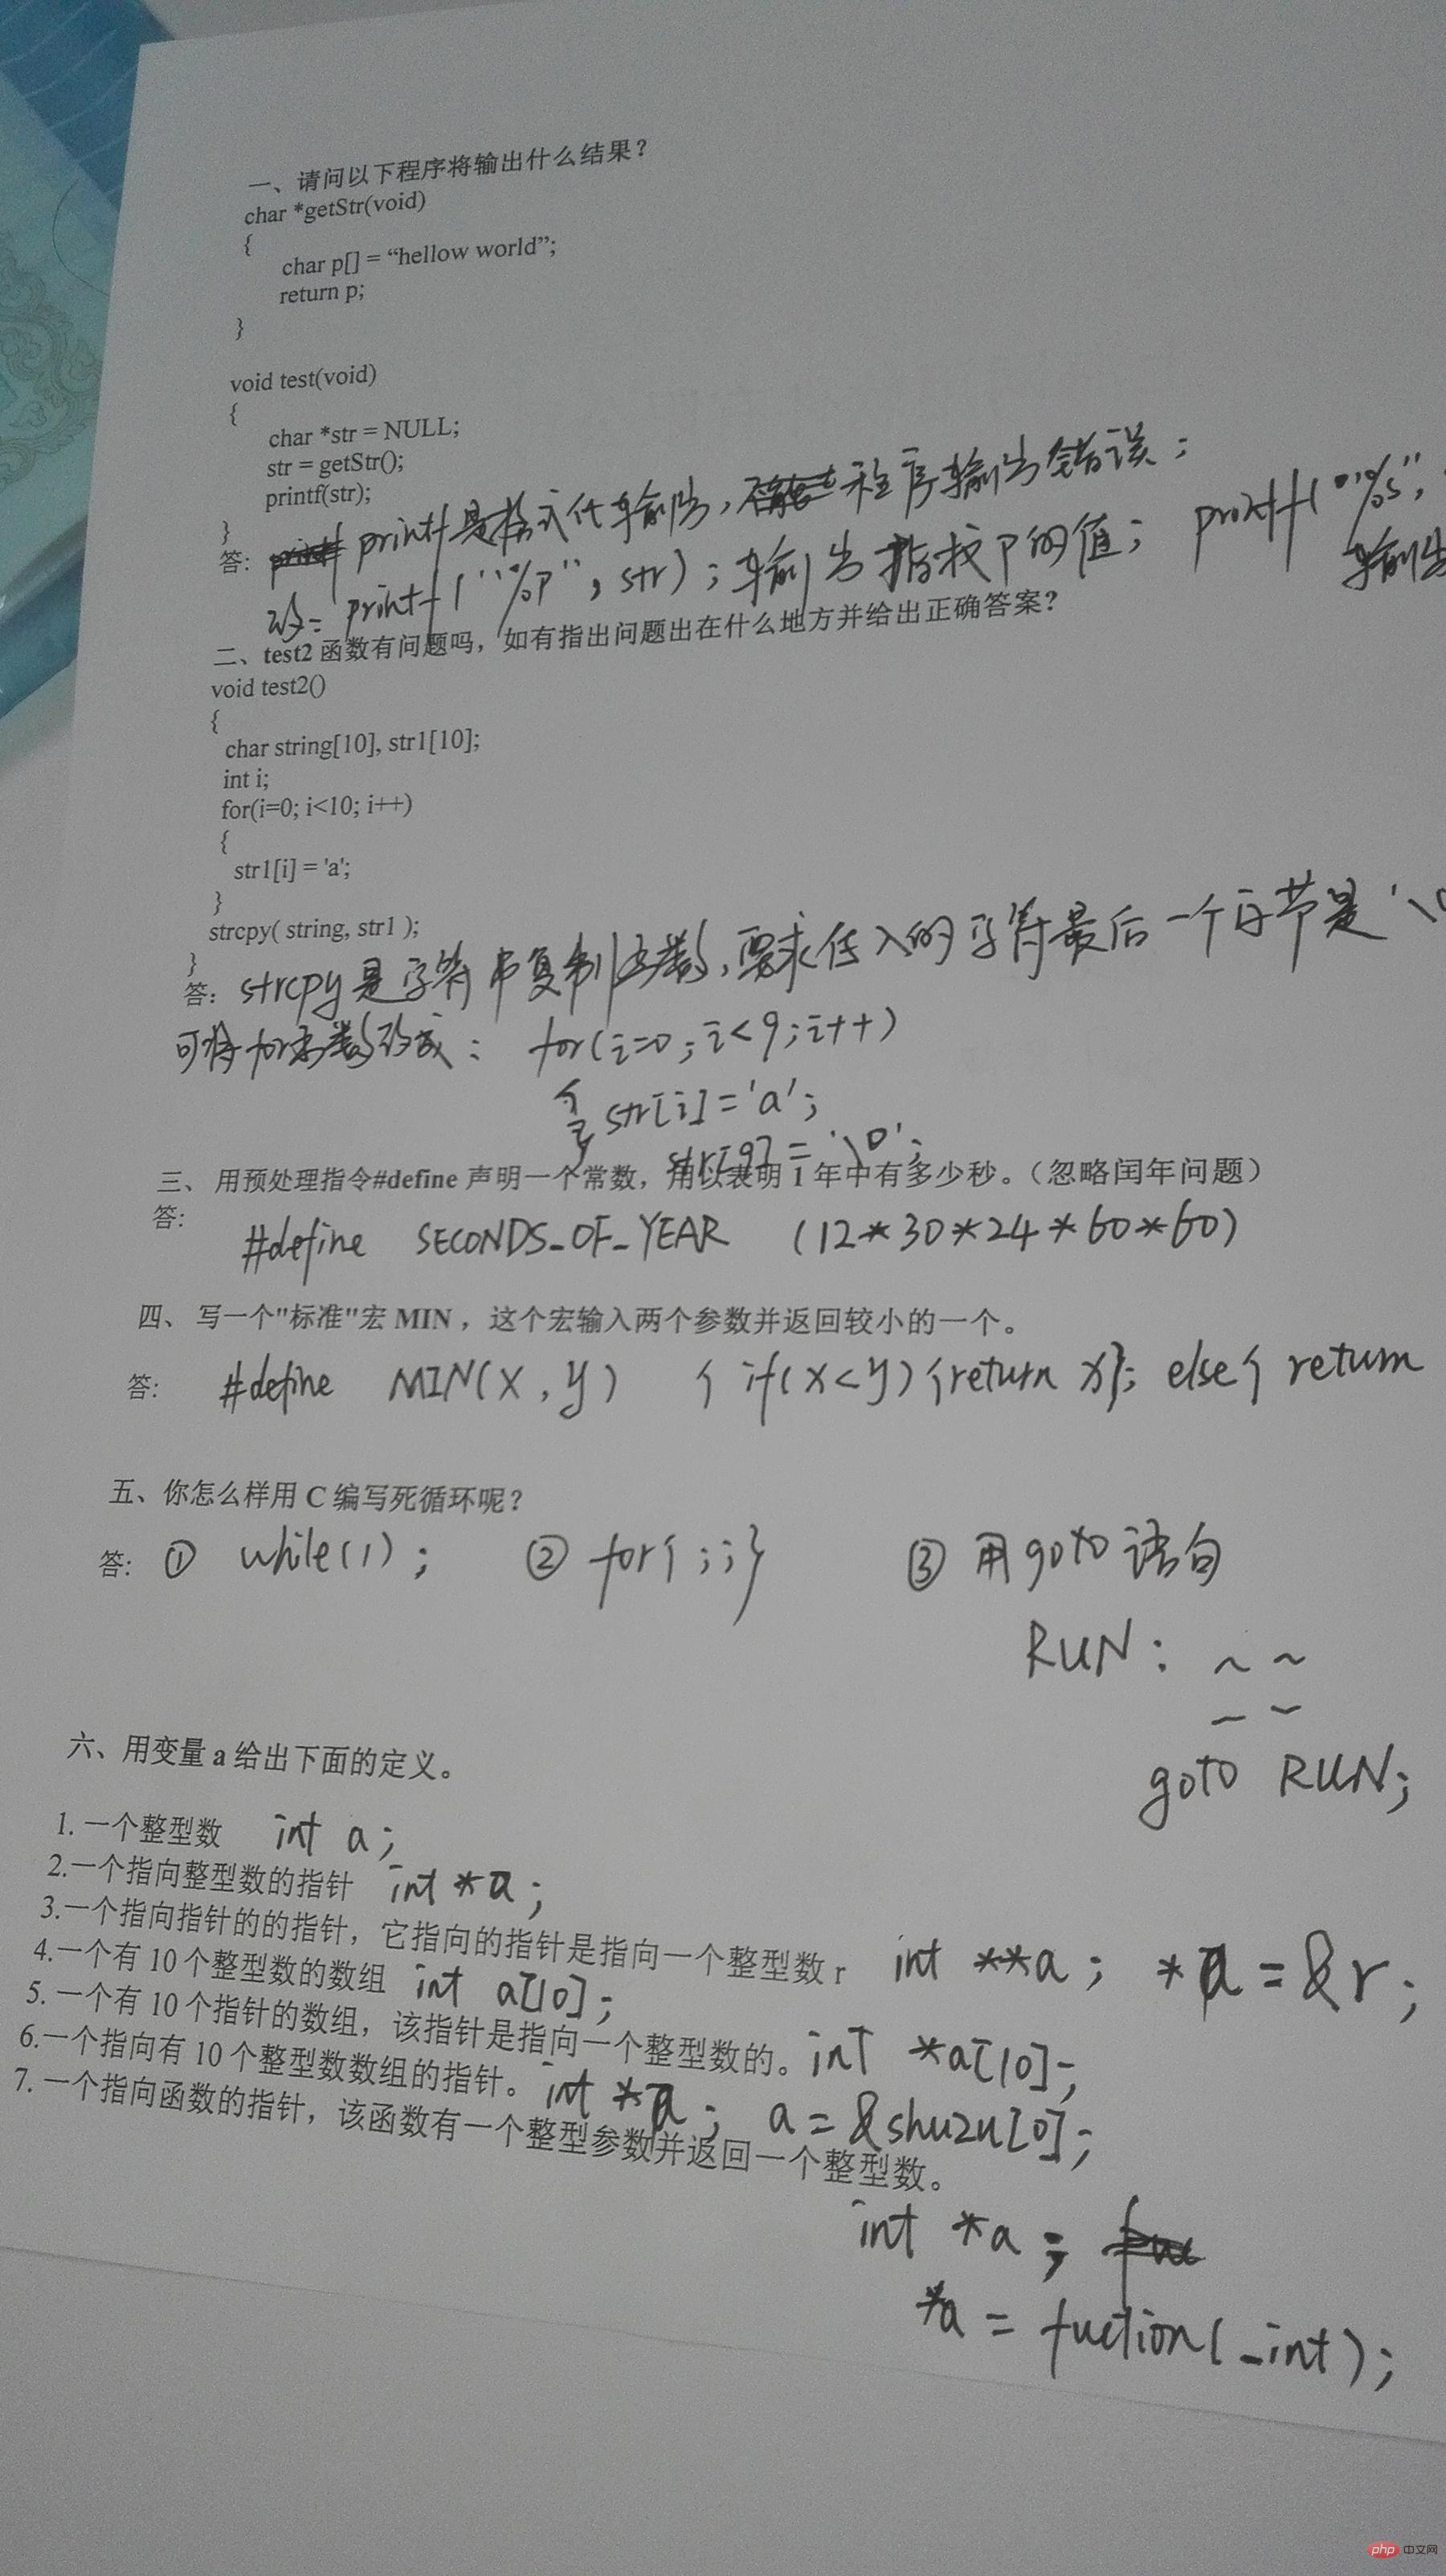 一、请问以下程序将输出什么结果？
char *getStr(void)
{
char p[] = “hellow world”;
return p;
}
void test(void)
{
char *str = NULL;
str = getStr();
printf(str);
}
答: printf是格式化输出，程序输出错误；
printf("%s",
改: printf("%p", str); 输出指针p的值；
输出
二、test2 函数有问题吗，如有指出问题出在什么地方并给出正确答案？
void test2()
{
char string[10], str1[10];
int i;
for(i=0; i<10; i++)
{
str1[i] = 'a';
}
strcpy( string, str1 );
}
答: strcpy是字符串复制函数，要求传入的字符最后一个字节是'\0
可将for函数改成: for(i=0; i<9; i++)
{ str[i]='a';
str[9]='\0';
三、 用预处理指令#define 声明一个常数，用以表明 1 年中有多少秒。（忽略闰年问题）
答:
#define SECONDS_OF_YEAR (12*30*24*60*60)
四、 写一个"标准"宏 MIN ，这个宏输入两个参数并返回较小的一个。
答: #define MIN(x,y) { if(x<y){return x}; else{ return
五、你怎么样用 C 编写死循环呢？
答: ① while(1); ② for{;;} ③ 用goto语句
RUN: ~ ~
goto RUN;
六、用变量 a 给出下面的定义。
1. 一个整型数 int a;
2.一个指向整型数的指针 int *a;
3.一个指向指针的的指针，它指向的指针是指向一个整型数 r int **a; *a=&r;
4.一个有 10 个整型数的数组 int a[10];
5. 一个有 10 个指针的数组，该指针是指向一个整型数的。int *a[10];
6.一个指向有 10 个整型数数组的指针。int *a; a=&shuzu[0];
7. 一个指向函数的指针，该函数有一个整型参数并返回一个整型数。
int *a;
*a = fuction(_int);
php 中文网